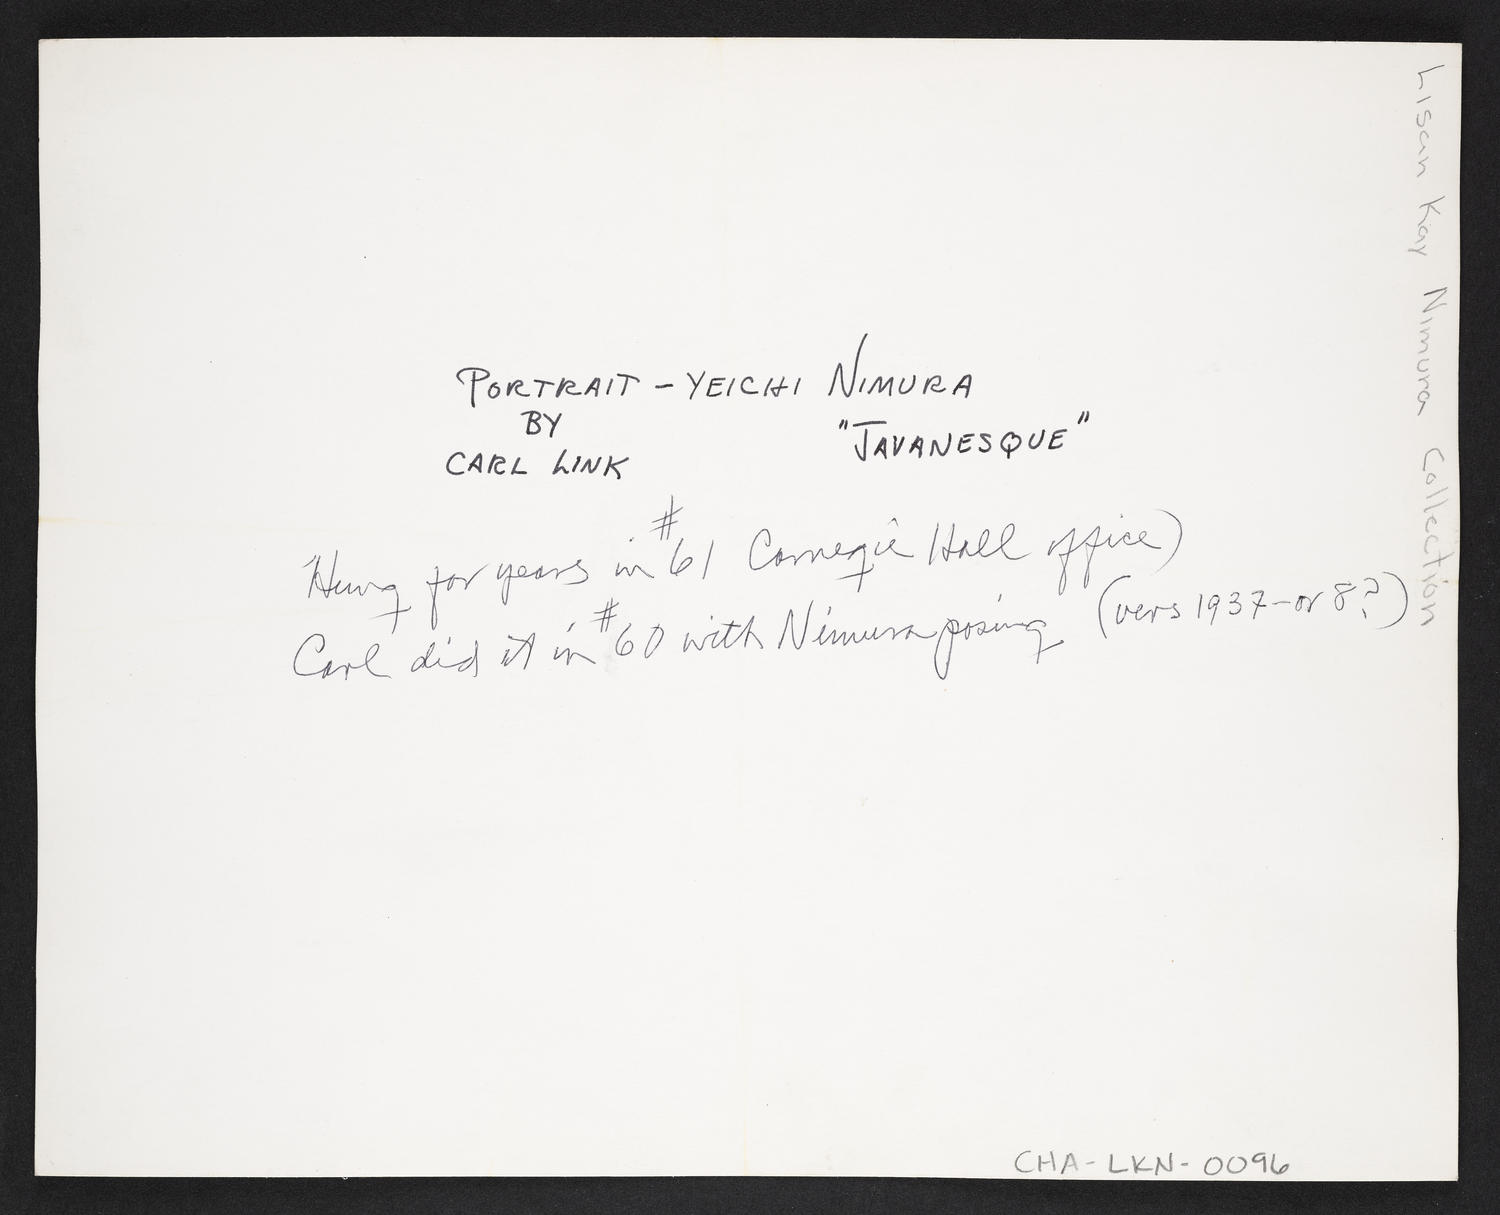 PORTRAIT - YEICHI NIMURA
BY
"JAVANESQUE"
CARL LINK
Hung for years in #61 Carnegie Hall office)
Carl did it in #60 with Nimura posing (vers 1937-or 8?)
Lisan Kay Nimura Collection
CHA-LKN-0096